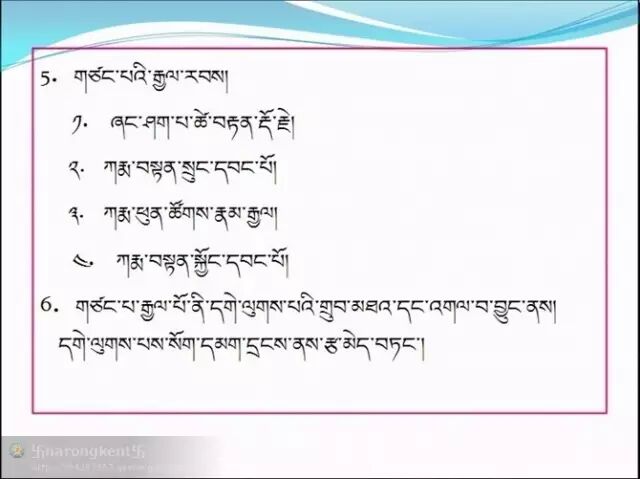 5. གཙང་པའི་རྒྱལ་རབས།
༡. ཞང་ཤག་པ་ཚེ་བརྟན་རྡོ་རྗེ།
༢. ཀརྨ་བསྟན་སྲུང་དབང་པོ།
༣. ཀརྨ་ཕུན་ཚོགས་རྣམ་རྒྱལ།
༤. ཀརྨ་བསྟན་སྐྱོང་དབང་པོ།
6. གཙང་པ་རྒྱལ་པོ་ནི་དགེ་ལུགས་པའི་གྲུབ་མཐའ་དང་འགལ་བ་བྱུང་ནས།
དགེ་ལུགས་པས་སོག་དམག་དྲངས་ནས་རྩ་མེད་བཏང་།
卐narongkent卐